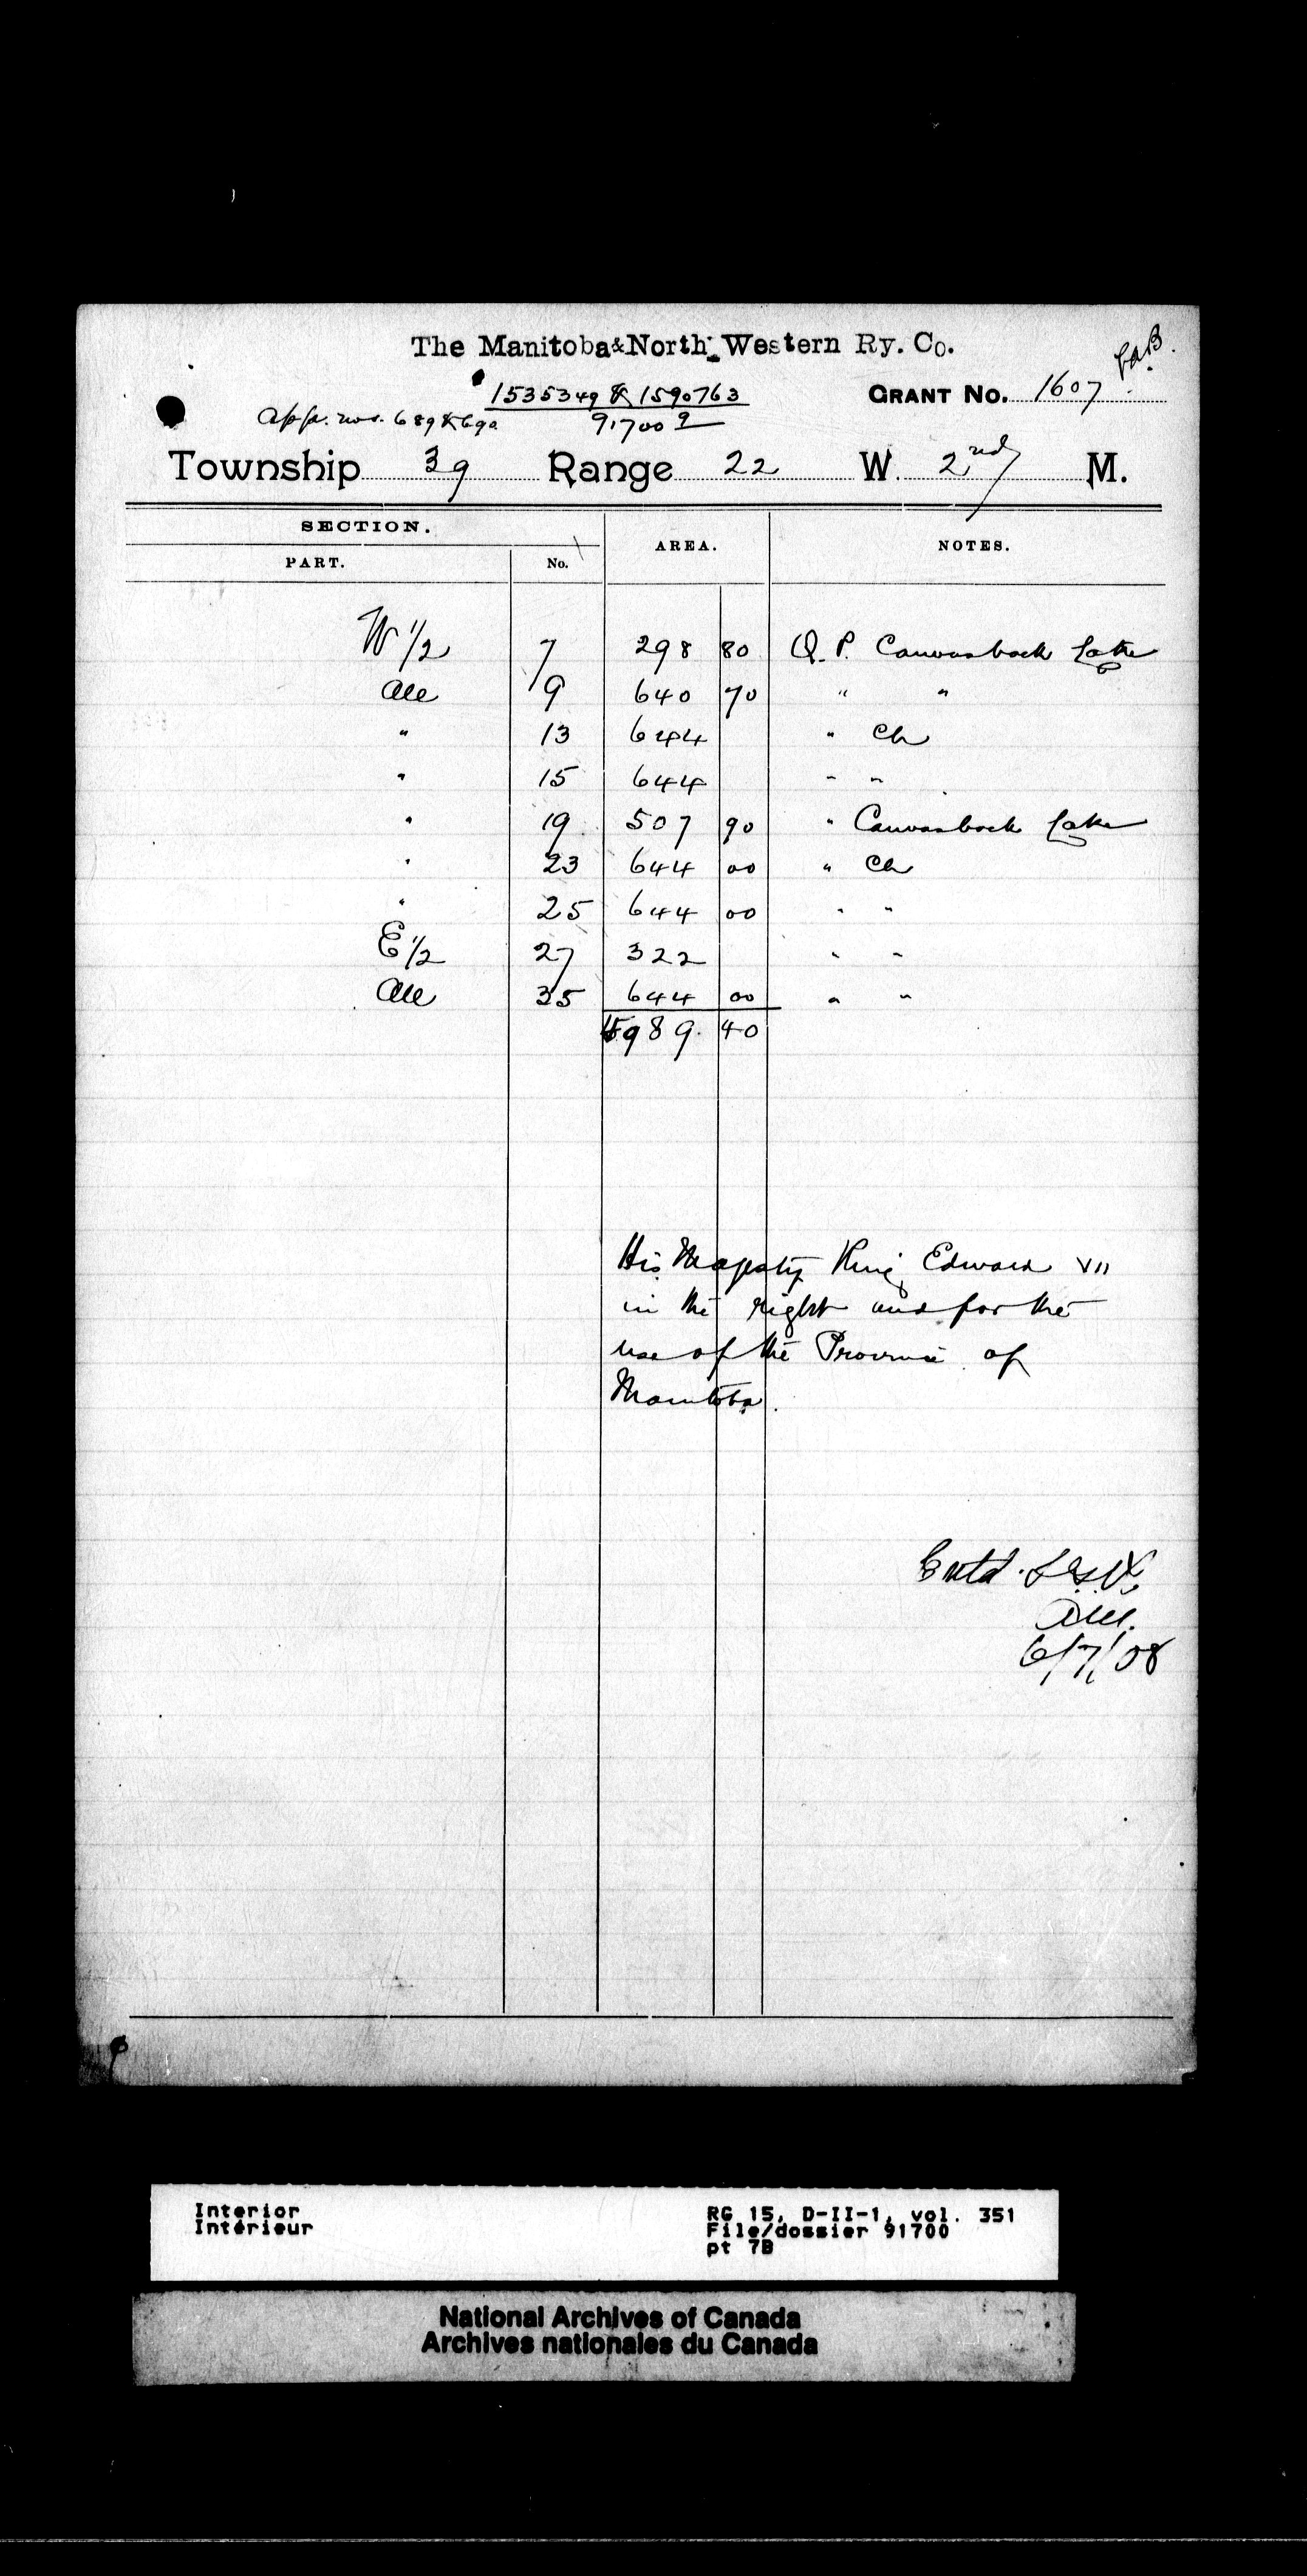 The Manitoba & North-Western Ry. Co.
1535349 & 1590763
GRANT No. 1607
App. nos. 689 & 690
91700 9
Township 39 Range 22 W. 2nd M.
SECTION.
AREA.
NOTES.
PART.
No.
W 1/2 7 298 80 Q. P. Canvasback Lake
All 9 640 70 " "
" 13 644 " Ch
" 15 644 " "
" 19 507 90 " Canvasback Lake
" 23 644 00 " Ch
" 25 644 00 " "
E 1/2 27 322 " "
All 35 644 00 " "
4989. 40
His Majesty King Edward VII
in the right and for the
use of the Province of
Manitoba.
Entd.
6/7/08
Interior
Intérieur
RG 15, D-II-1, vol. 351
File/dossier 91700
pt 7B
National Archives of Canada
Archives nationales du Canada